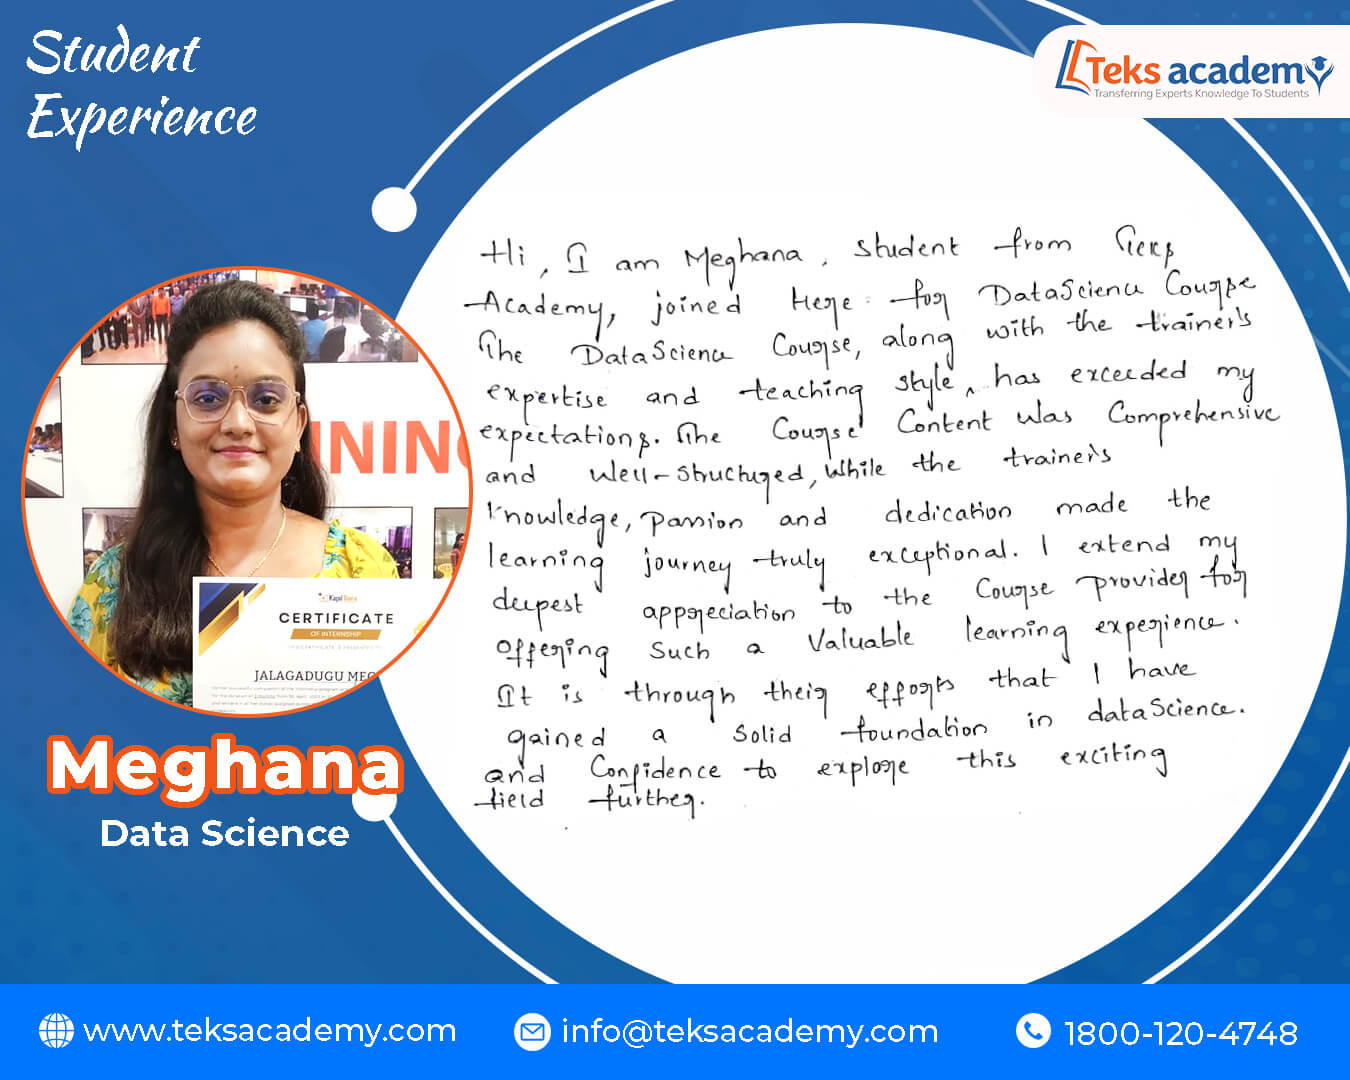 Student
Experience
Teks academy
Transferring Experts Knowledge To Students
Hi, I am Meghana, student from Teks
Academy, joined Here for DataScience Course
The DataScience Course, along with the trainer's
expertise and teaching style, has exceeded my
expectations. The Course Content was Comprehensive
and well-structured, while the trainer's
knowledge, passion and dedication made the
learning journey truly exceptional. I extend my
deepest appreciation to the Course provider for
offering such a valuable learning experience.
It is through their efforts that I have
gained a solid foundation in dataScience.
and Confidence to explore this exciting
field further.
ININ
CERTIFICATE
OF INTERNSHIP
JALAGADUGU MEG
Meghana
Data Science
www.teksacademy.com
info@teksacademy.com
1800-120-4748